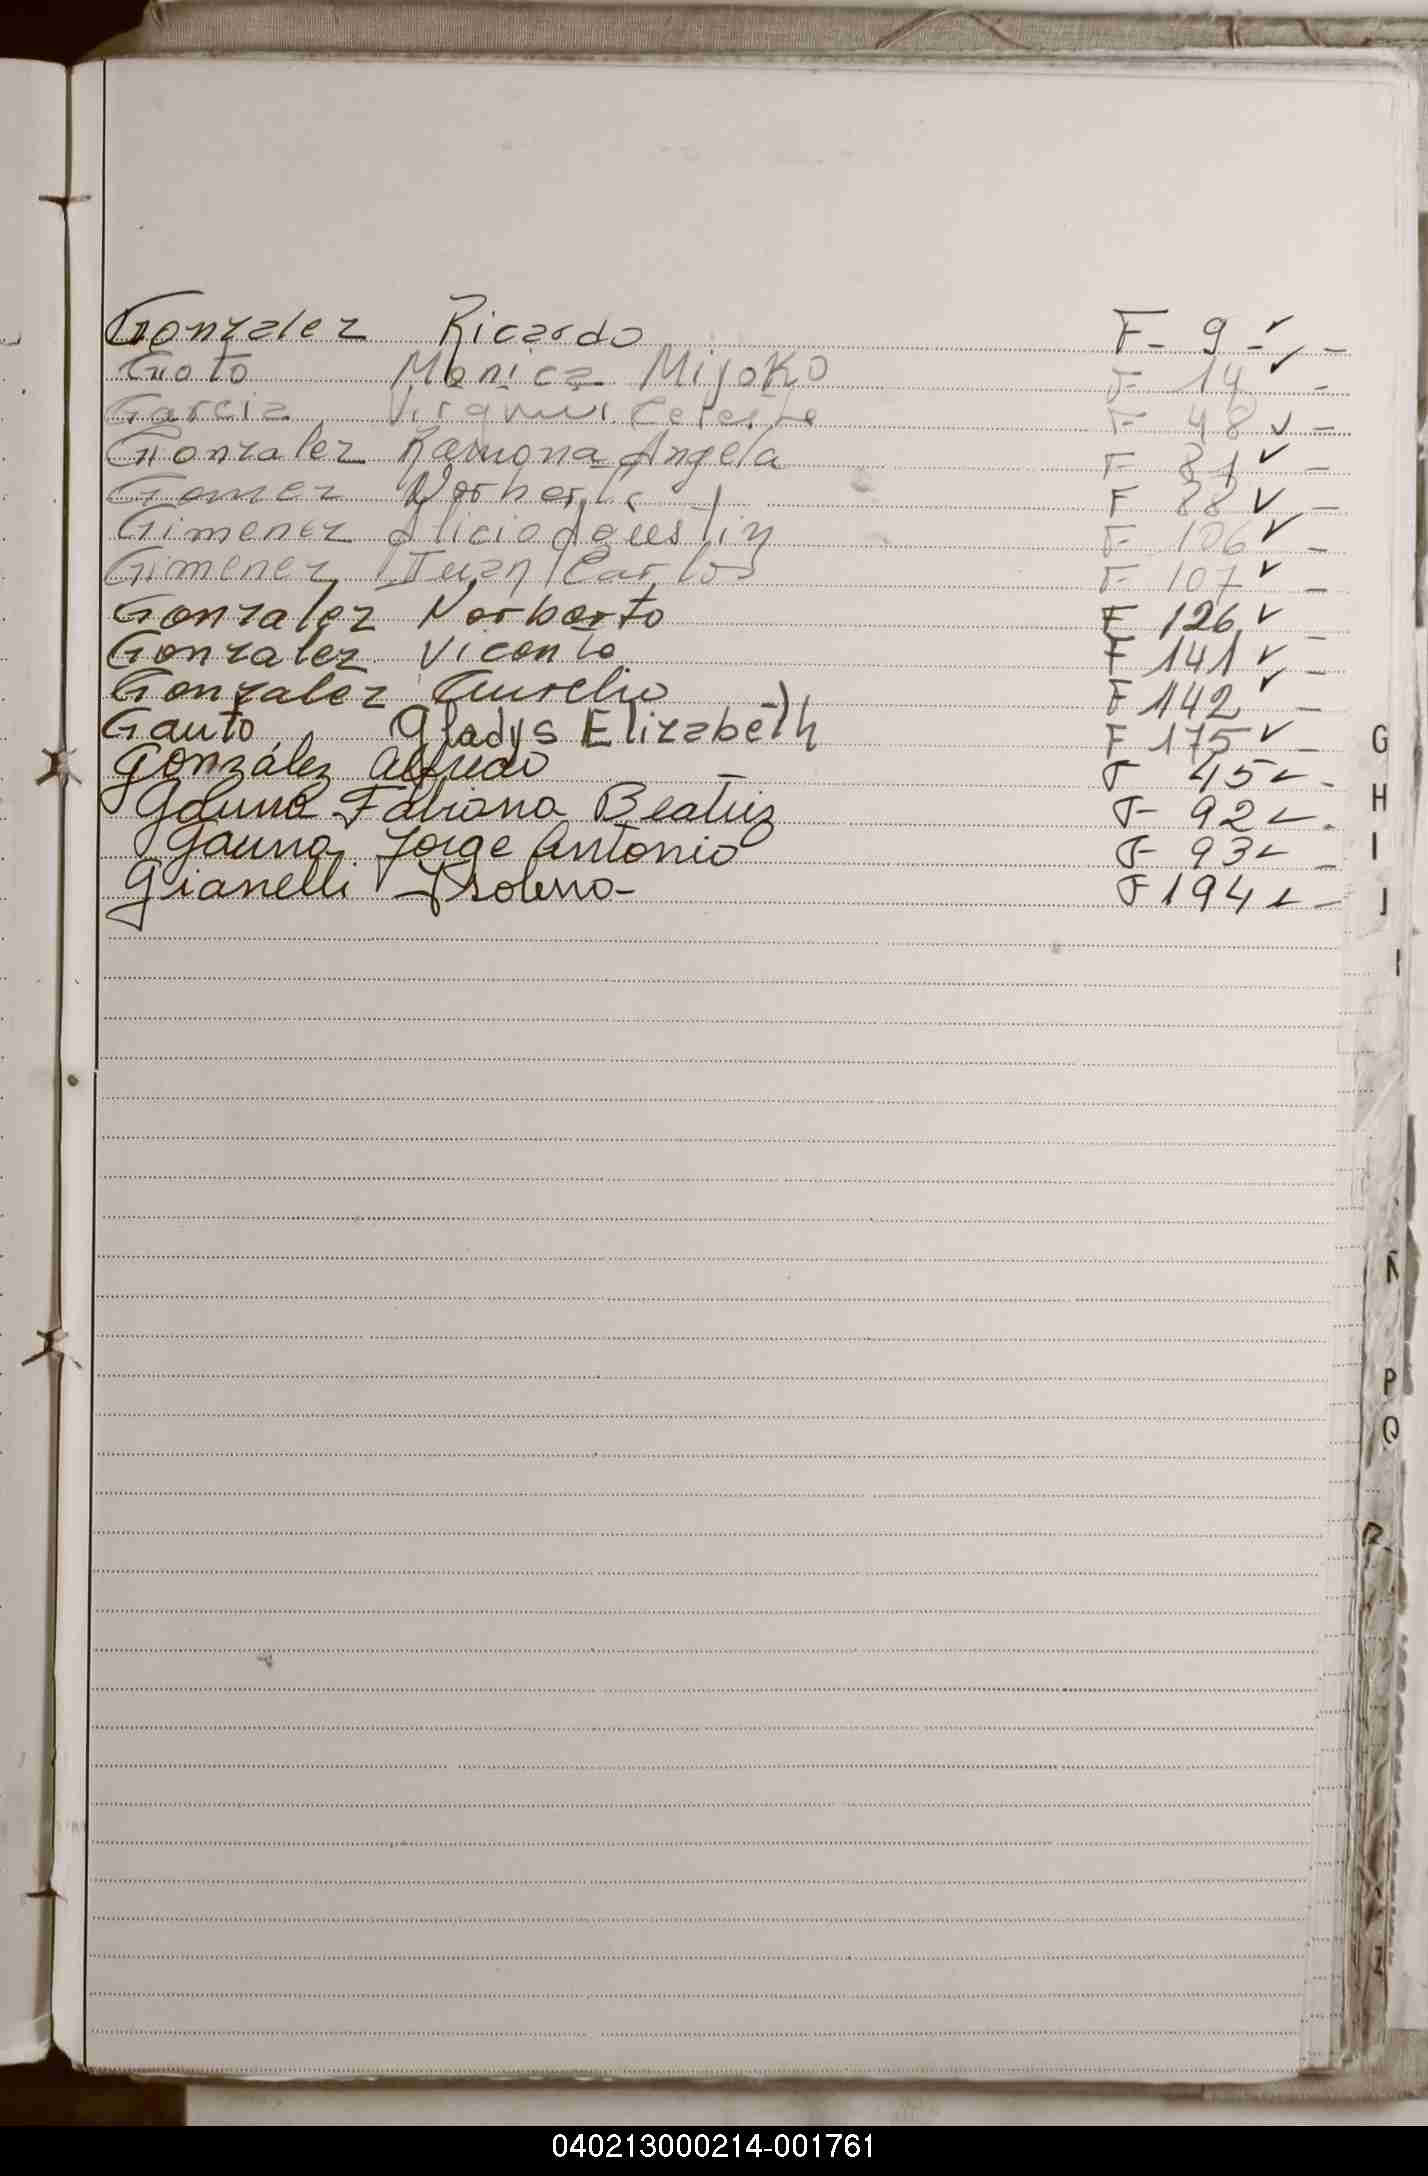 Gonzalez Ricardo F- 9 -✓ -
Goto Monica Miyoko F- 14 ✓ -
Garcia Virginia Celeste F- 48 ✓ -
Gonzalez Ramona Angela F- 81 ✓ -
Gomez Norberto F 88 ✓ -
Gimenez Alicio Agustin F- 106 ✓ -
Gimenez Juan Carlos F- 107 ✓ -
Gonzalez Norberto F 126 ✓ -
Gonzalez Vicente F 141 ✓ -
Gonzalez Aurelio F 142 ✓ -
Gauto Gladys Elizabeth F 175 ✓ -
González Alfredo - F 45 ✓ -
Gauna Fabiana Beatriz F- 92 ✓ -
Gauna Jorge Antonio F- 93 ✓ -
Gianelli F 194 ✓ -
G
H
I
J
Ñ
P
Q
R
040213000214-001761